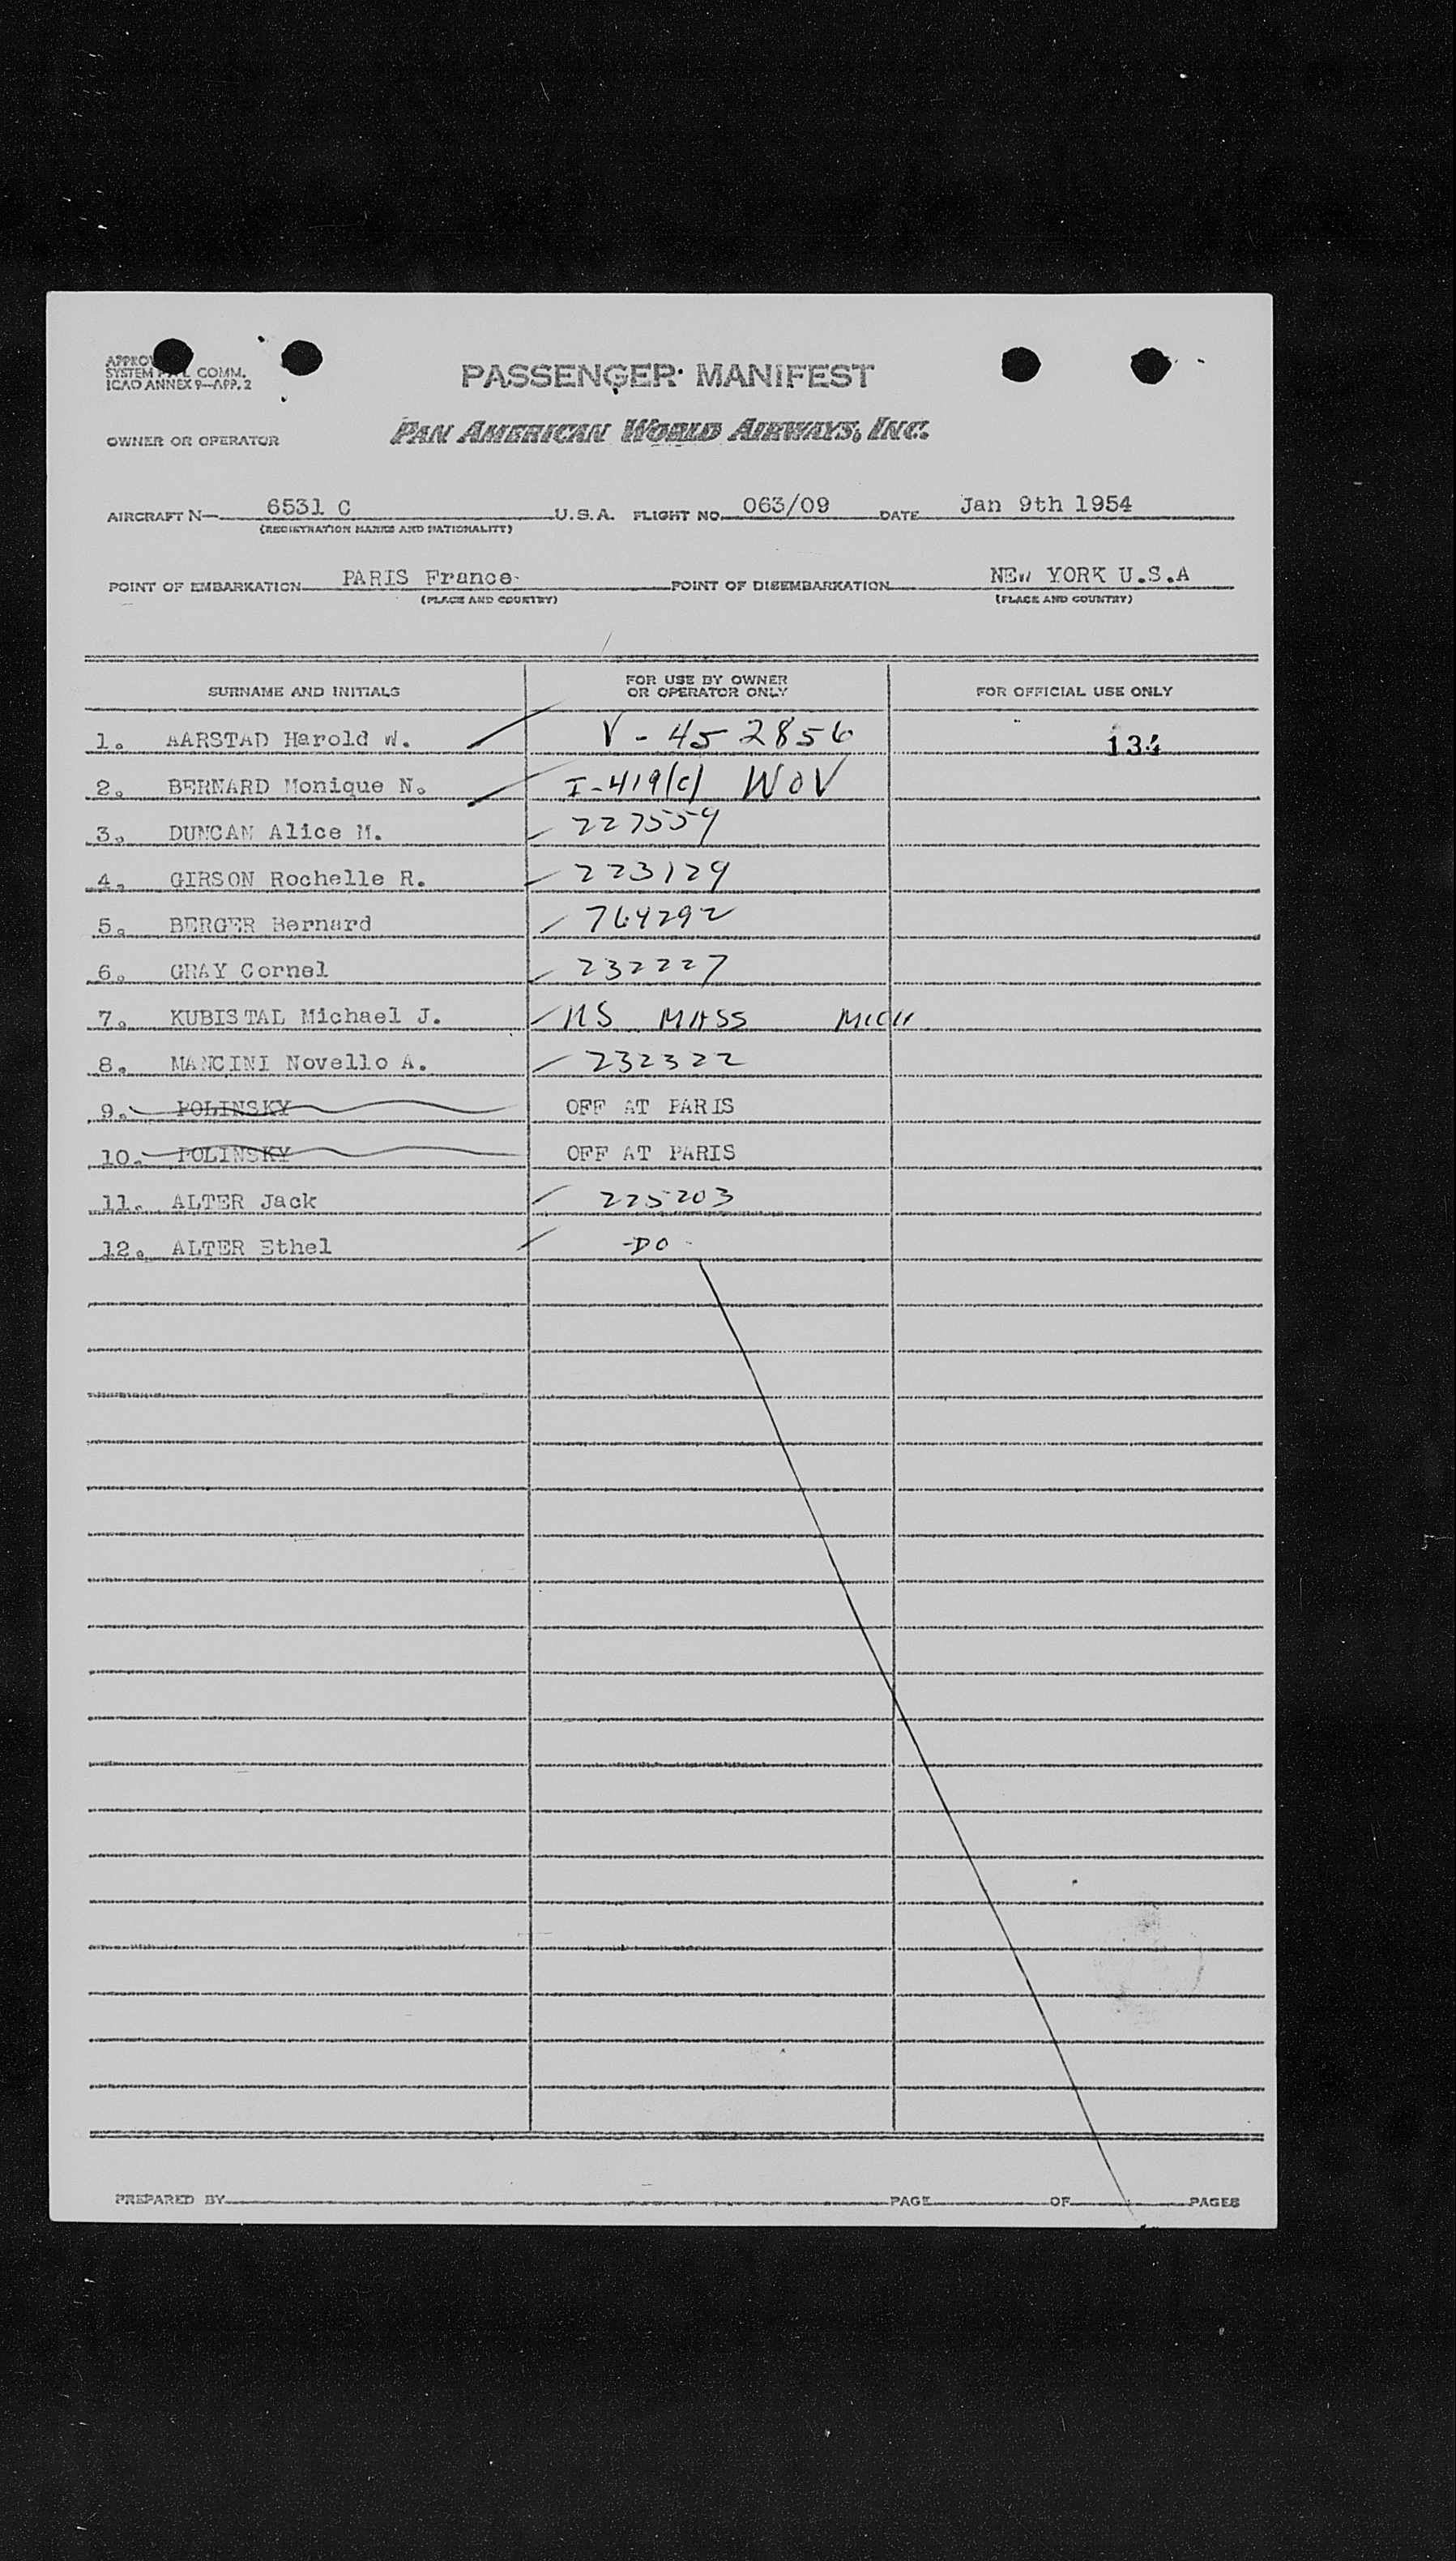 APPROV
SYSTEM COMM.
ICAO ANNEX 9—APP. 2
PASSENGER MANIFEST
OWNER OR OPERATOR PAN AMERICAN WORLD AIRWAYS, INC.
AIRCRAFT N— 6531 C U.S.A. FLIGHT NO. 063/09 DATE Jan 9th 1954
(REGISTRATION MARKS AND NATIONALITY)
POINT OF EMBARKATION PARIS France POINT OF DISEMBARKATION NEW YORK U.S.A
(PLACE AND COUNTRY) (PLACE AND COUNTRY)
SURNAME AND INITIALS FOR USE BY OWNER OR OPERATOR ONLY FOR OFFICIAL USE ONLY
1. AARSTAD Harold W. V-452856 134
2. BERNARD Monique N. I-419(c) WOV
3. DUNCAN Alice M. 227559
4. GIRSON Rochelle R. 223129
5. BERGER Bernard 764292
6. GRAY Cornel 232227
7. KUBISTAL Michael J. US MASS MICH
8. MANCINI Novello A. 232322
9. POLINSKY OFF AT PARIS
10. POLINSKY OFF AT PARIS
11. ALTER Jack 225203
12. ALTER Ethel -DO-
PREPARED BY PAGE OF PAGES